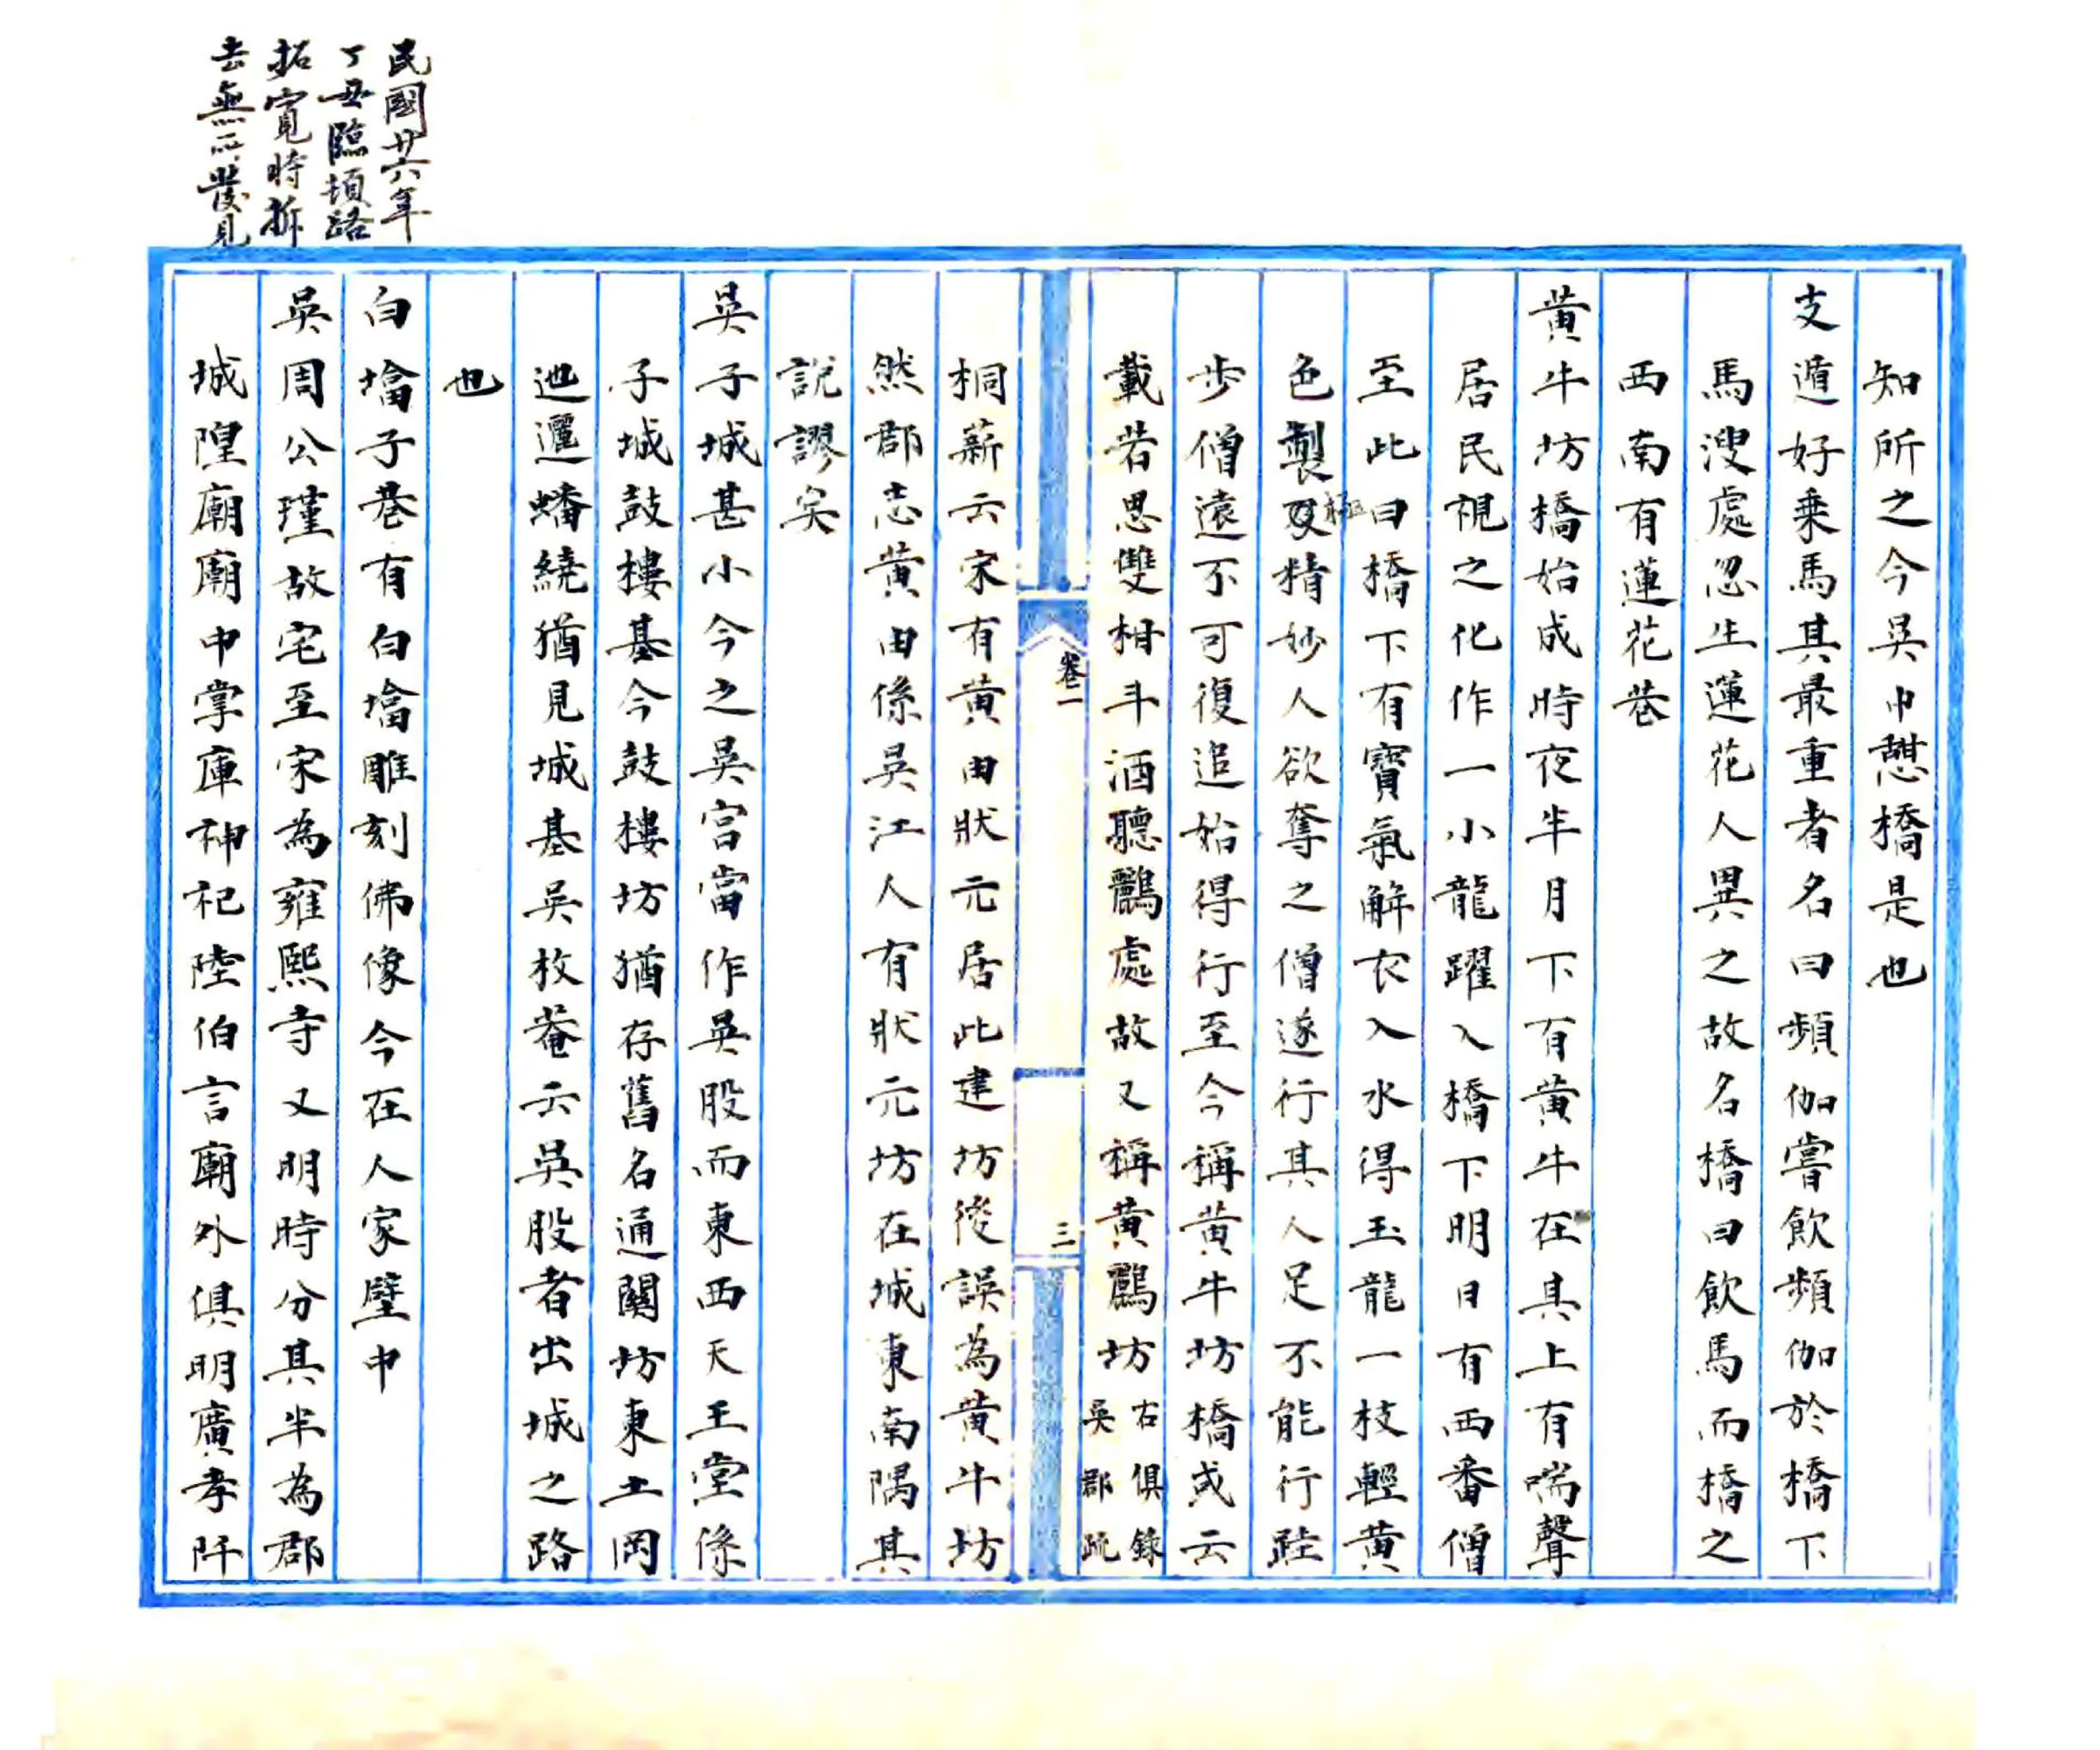 知所之今吳中憇橋是也
支遁好乗馬其最重者名曰頻伽嘗飲頻伽於橋下
馬溲處忽生蓮花人異之故名橋曰飲馬而橋之
西南有蓮花巷
黄牛坊橋始成時夜半月下有黄牛在其上有喘聲
居民視之化作一小龍躍入橋下明日有西番僧
至此曰橋下有寳氣解衣入水得玉龍一枝輕黄
色製極精妙人欲奪之僧遂行其人足不能行跬
步僧遠不可復追始得行至今稱黄牛坊橋或云
載若思雙柑斗酒聽鸝處故又稱黄鸝坊右俱錄吳郡疏
卷一
三
桐薪云宋有黄由狀元居此建坊後誤為黄牛坊
然郡志黄由係吳江人有狀元坊在城東南隅其
說謬矣
吳子城甚小今之吳宫當作吳股而東西天王堂係
子城鼓樓基今鼓樓坊猶存舊名通闤坊東土岡
迆邐蟠繞猶見城基吳枚菴云吳股者出城之路
也
白墖子巷有白墖雕刻佛像今在人家壁中
吳周公瑾故宅至宋為雍熙寺又明時分其半為郡
城隍廟廟中掌庫神祀陸伯言廟外俱明廣孝阡
民國廿六年
丁丑臨頓路
拓寬時拆
去無所發見